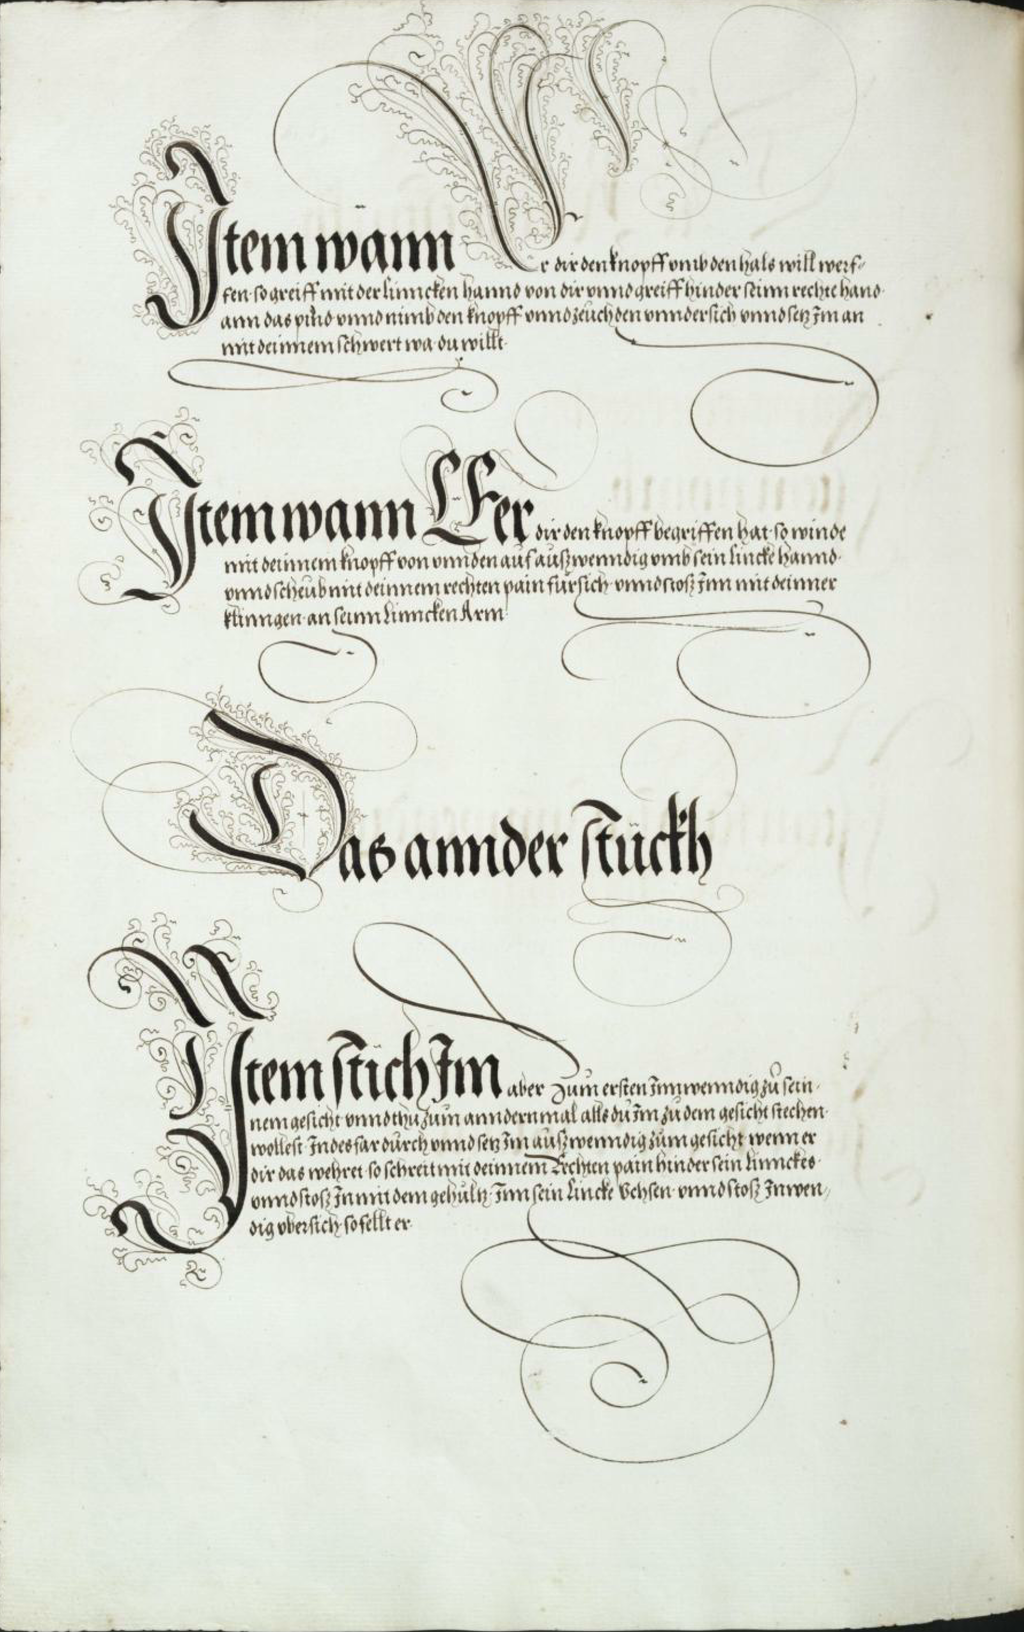 Item wann Er dir den knopff vmb den hals will werf-
fen. so greiff mit der linncken hannd von dir vnnd greiff hinder seinn rechte hand.
ann das pind vnnd nimb den knopff vnnd zeuch den vnndersich vnnd setz Im an
mit deinnem schwert wa du willt.
Item wann Er dir den knopff begriffen hat. so winde
mit deinnem knopff von vnnden auf auszwenndig vmb sein lincke hannd.
vnnd scheub mit deinnem rechten pain für sich. vnnd stosz Inn mit deinner
klinngen. an seinn Linncken Arm.
Das annder stückh
Item stich Im aber zum ersten Innwenndig zů sein-
nem gesicht vnnd thu zum anndern mal alls du Im zu dem gesicht stechen.
wollest. Indes far durch vnnd setz Im auszwenndig zum gesicht. wenn er
dir das wehret. so schreit mit deinnem Rechten pain hinder sein linnckes.
vnnd stosz In mit dem gehultz. Inn sein Lincke Vchsen. vnnd stosz In wen-
dig vbersich. so fellt er.